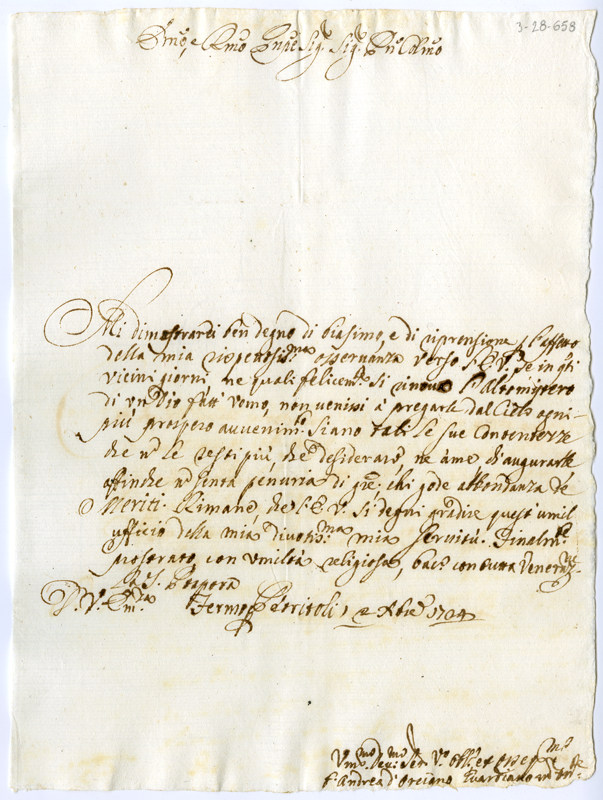 3-28-658
Emo, e Rmo Sig.r Sig.r Pne Colmo
Mi dimostrarei ben degno di biasimo, e di riprensione, l'affetto
della mia ossequanza verso l'E. V. se in q.ti
vicini giorni, ne quali felicem.te si rinova l'alto mistero
di vn Dio fatt' Vomo, non venissi à pregarle dal Cielo ogni
più prospero avvenim.to. Siano tali le sue Contentezze
che nō le resti più, che desiderare, ne à me d'augurarle
affinche nō senta penuria di chi gode abbondanza de
Meriti. Rimane che l'E. V. si degni gradire quest' umil
ufficio della mia divotis.ma mia servitù. Finalm.te
prostrato, con vmiltà religiosa, bacio con tutta Veneraz.ne
la S. Porpora
D. V. Em.za Fermo Petritoli, Xbre 1704
Vmo. Ser. V.o Obl.
f. Andrea d'Orciano Guardiano